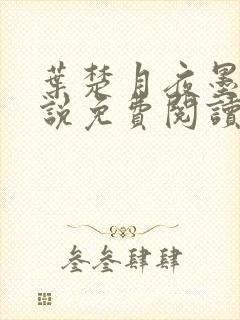 葉楚月夜墨
說免費閱讀
叁叁肆肆